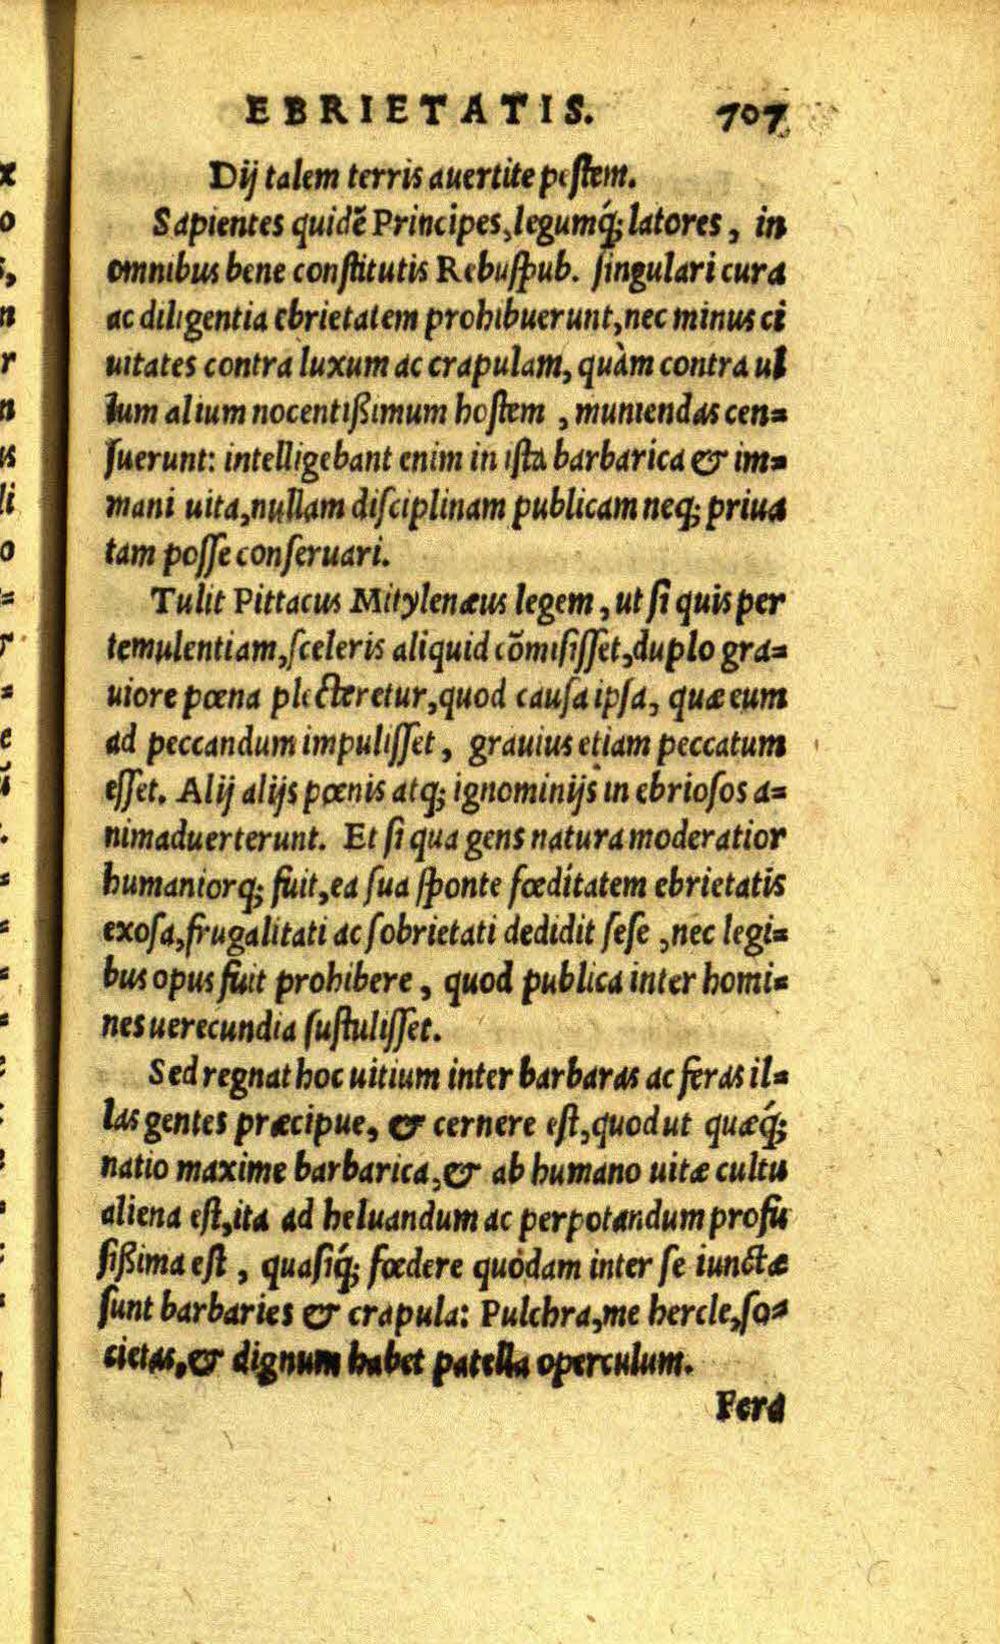 EBRIETATIS. 707
Dij talem terris auertite pestem.
Sapientes quidẽ Principes, legumq́; latores, in
omnibus bene constitutis Rebuspub. singulari cura
ac diligentia ebrietatem prohibuerunt, nec minus ci
uitates contra luxum ac crapulam, quàm contra ul
lum alium nocentißimum hostem, muniendas cen=
suerunt: intelligebant enim in ista barbarica & im=
mani uita, nullam disciplinam publicam neq; priua
tam posse conseruari.
Tulit Pittacus Mitylenæus legem, ut si quis per
temulentiam, sceleris aliquid cõmisisset, duplo gra=
uiore pœna plecteretur, quod causa ipsa, quæ eum
ad peccandum impulisset, grauius etiam peccatum
esset. Alij alijs pœnis atq; ignominijs in ebriosos a=
nimaduerterunt. Et si qua gens natura moderatior
humaniorq; fuit, ea sua sponte fœditatem ebrietatis
exosa, frugalitati ac sobrietati dedidit sese, nec legi=
bus opus fuit prohibere, quod publica inter homi=
nes uerecundia sustulisset.
Sed regnat hoc uitium inter barbaras ac feras il=
las gentes præcipue, & cernere est, quod ut quæq́;
natio maxime barbarica, & ab humano uitæ cultu
aliena est, ita ad heluandum ac perpotandum profu
sißima est, quasiq́; fœdere quodam inter se iunctæ
sunt barbaries & crapula: Pulchra, me hercle, so=
cietas, & dignum habet patella operculum.
Fera